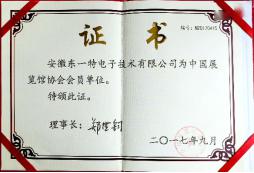 证书
安徽东一特电子技术有限公司为中国展
览馆协会会员单位。
特颁此证。
理事长：
二〇一七年九月